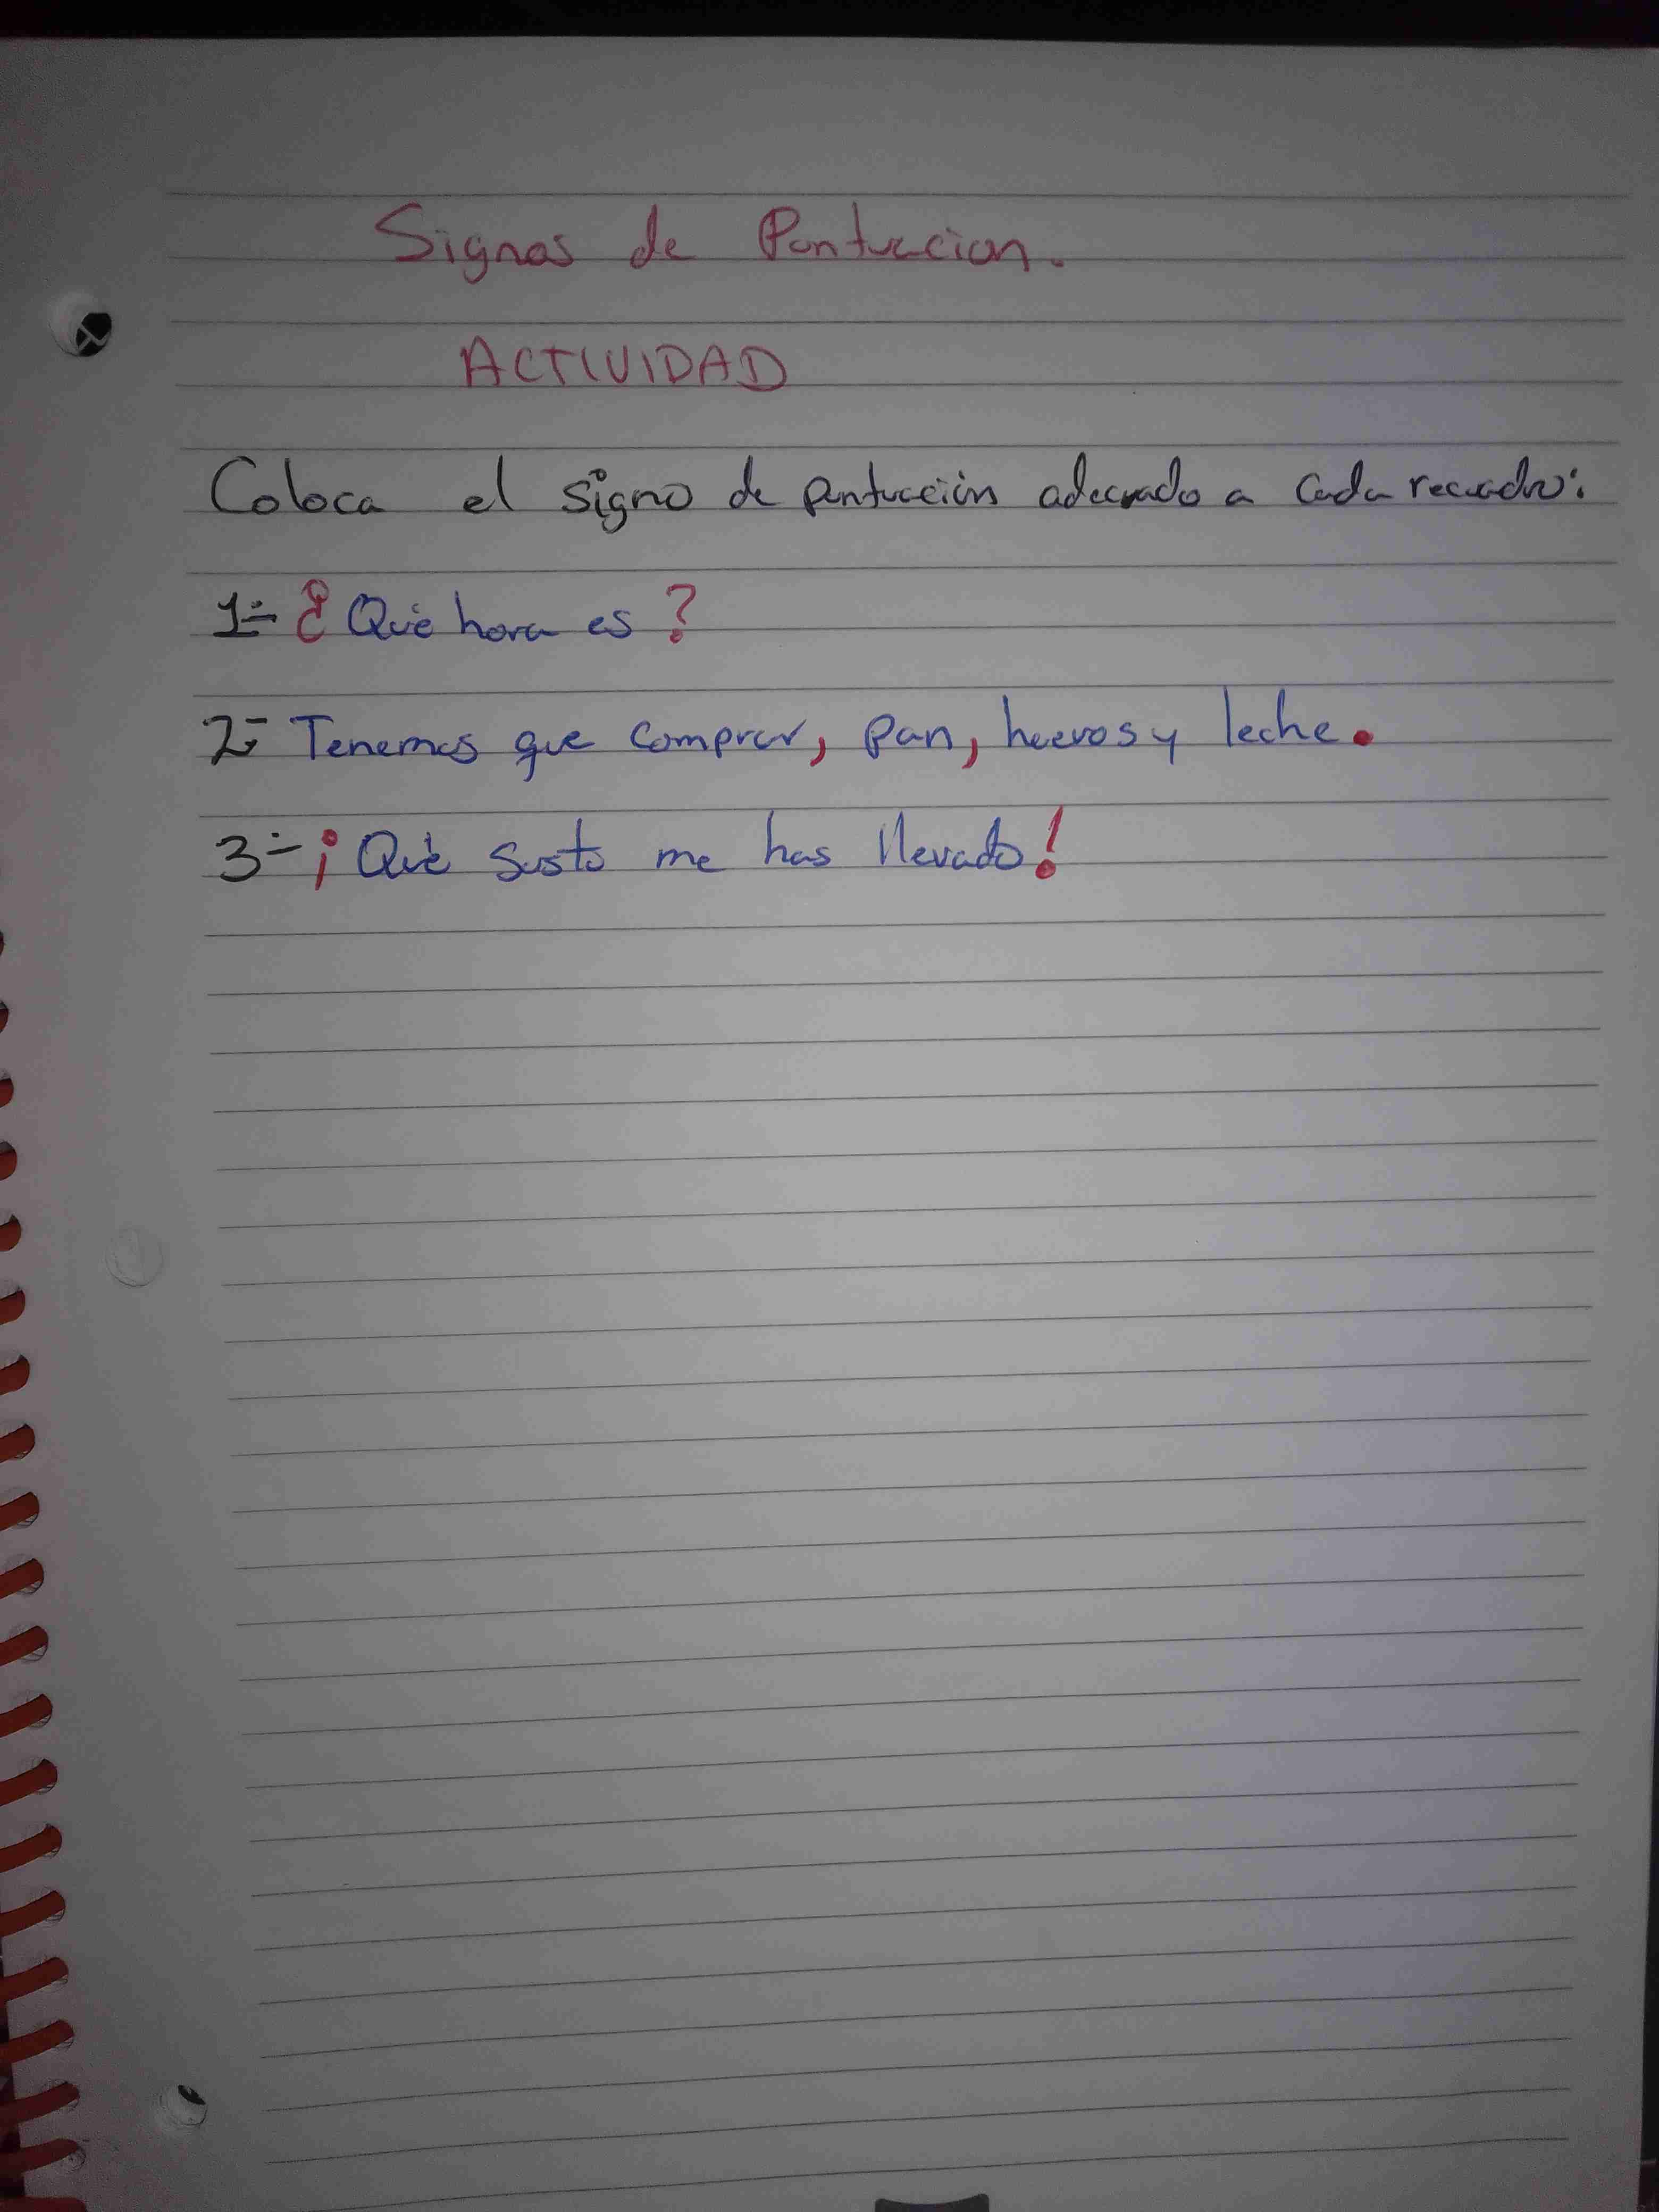 Signos de Puntuacion.
ACTIVIDAD
Coloca el signo de puntuación adecuado a cada recuadro:
1- ¿Qué hora es?
2- Tenemos que comprar, pan, huevos y leche.
3- ¡Qué susto me has llevado!